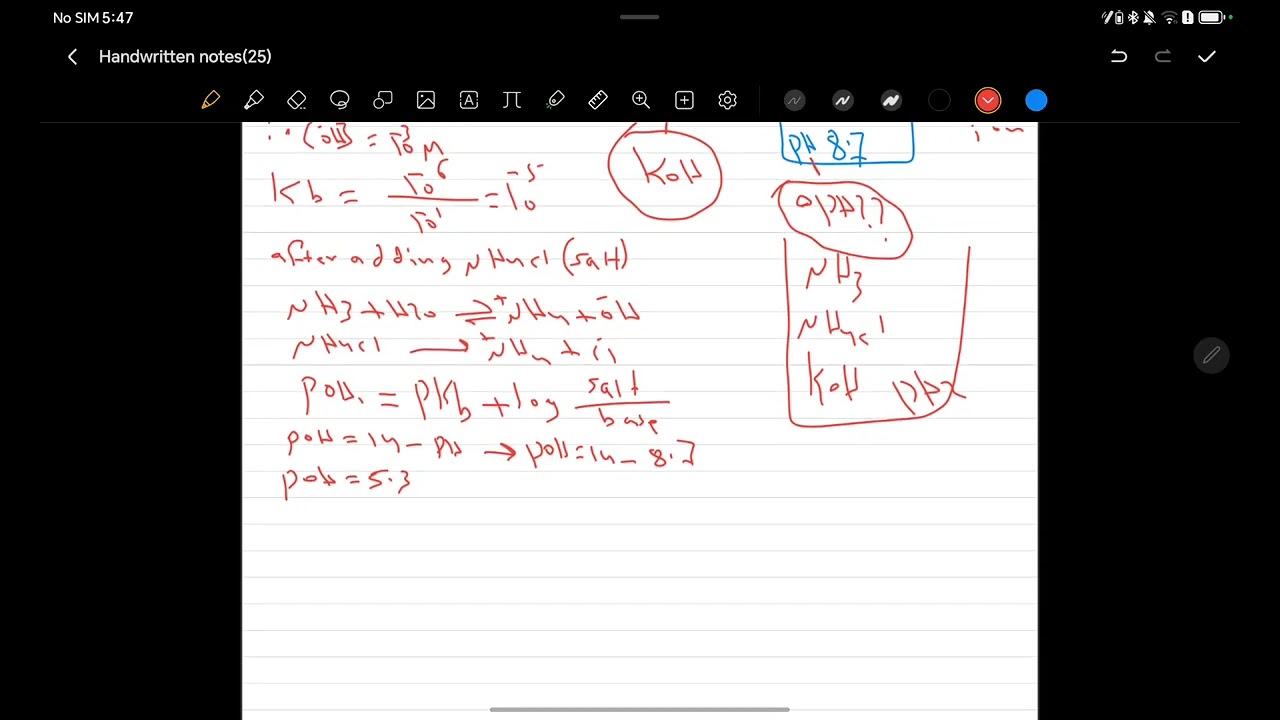 No SIM 5:47
Handwritten notes(25)
∴ [ŌH] = 10⁻³ M
Kb = 10⁻⁶ / 10⁻¹ = 10⁻⁵
after adding NH4Cl (salt)
NH3 + H2O ⇌ ⁺NH4 + ŌH
NH4Cl → ⁺NH4 +
POH = PKb + log salt / base
POH = 14 - PH → POH = 14 - 8.7
POH = 5.3
KOH
PH 8.7
PH??
NH3
NH4Cl
KOH